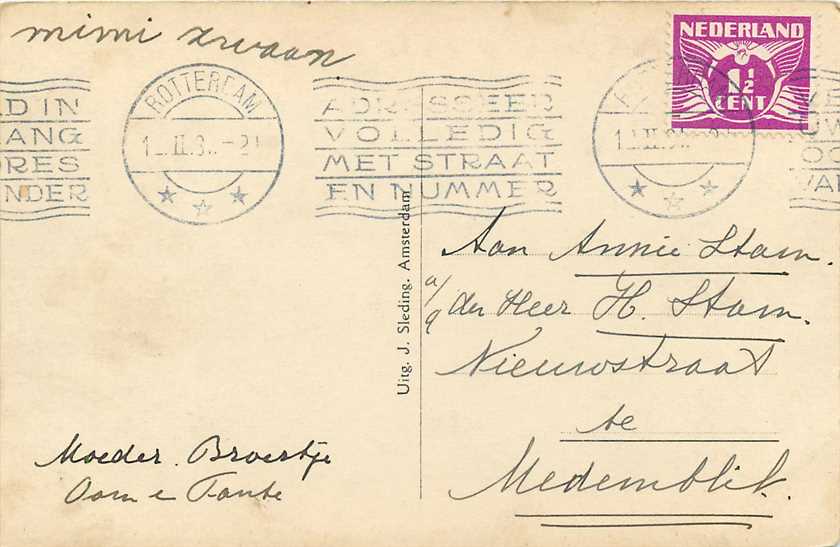 mimi zwaan
NEDERLAND
1½
CENT
ROTTERDAM
ADRESSEER
VOLLEDIG
MET STRAAT
EN NUMMER
D IN
ANG
DRES
NDER
Uitg. J. Sleding. Amsterdam
Aan Annie Stam.
a/d den Heer H. Stam.
Nieuwstraat
te
Medemblik.
Moeder. Broertje
Oom e Tante